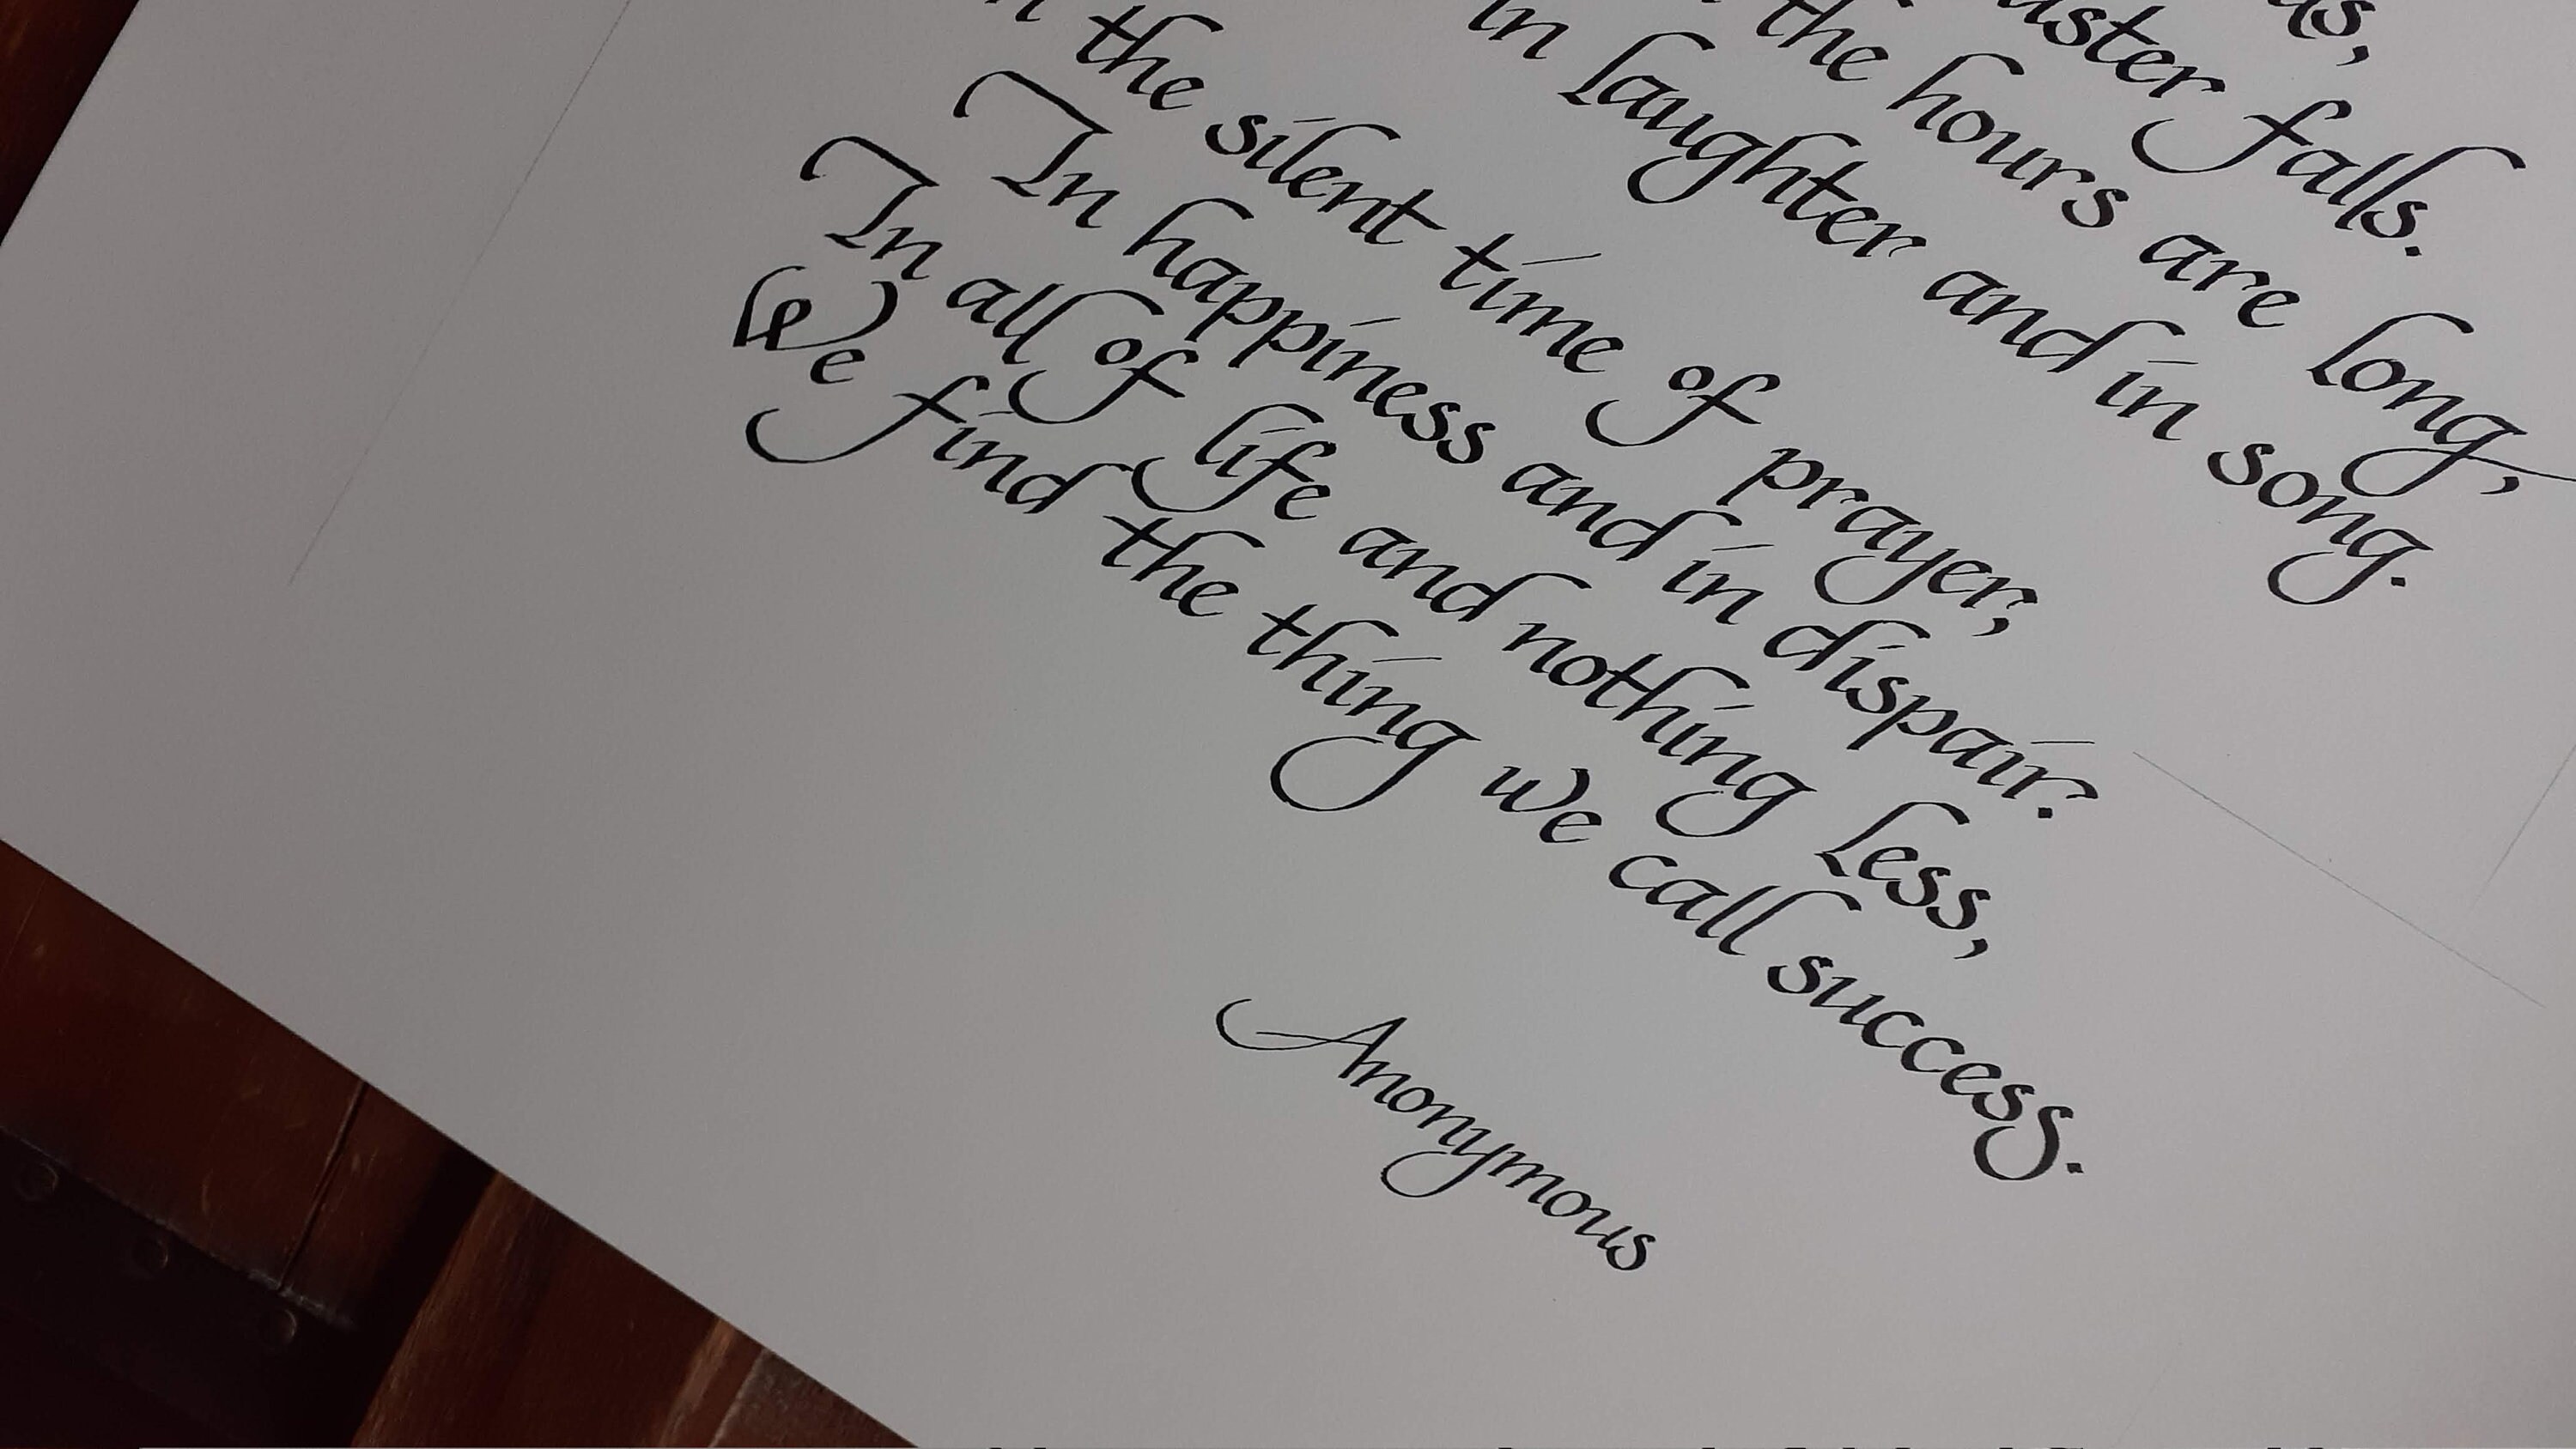 falls.
the hours are long,
in laughter and in song.
the silent time of prayer,
In happiness and in dispair.
In all of life and nothing less,
We find the thing we call success.
Anonymous